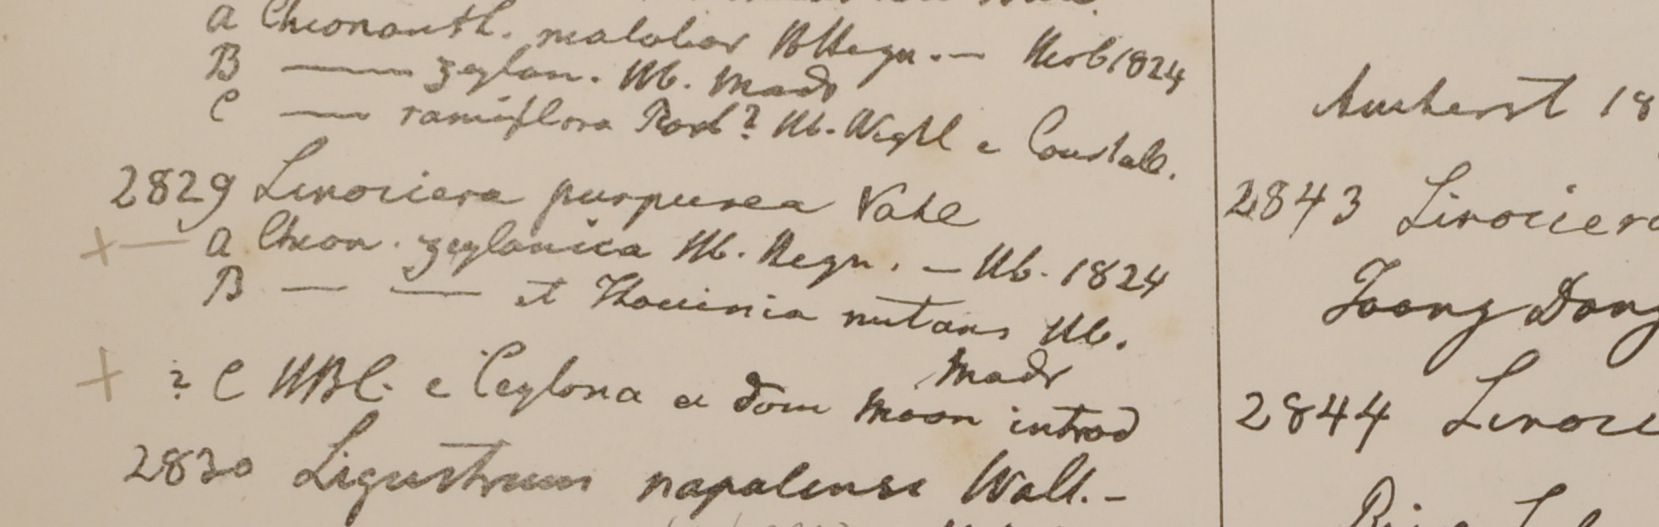 a Chionanth. malabar HHeyn. — Herb 1824
B —— zeylan. Hb. Madr
C —— ramiflora Roxb? Hb. Wight e Courtall.
2829 Linociera purpurea Vahl
+ — a Chion. zeylanica Hb. Heyn. — Hb. 1824
B — —— et Thouinia nutans Hb.
Madr
+ ? C HBC. e Ceylona a dom Moon introd
2830 Ligustrum napalense Wall. -
Amherst 18
2843 Linociera
Toong Dong
2844 Linoci